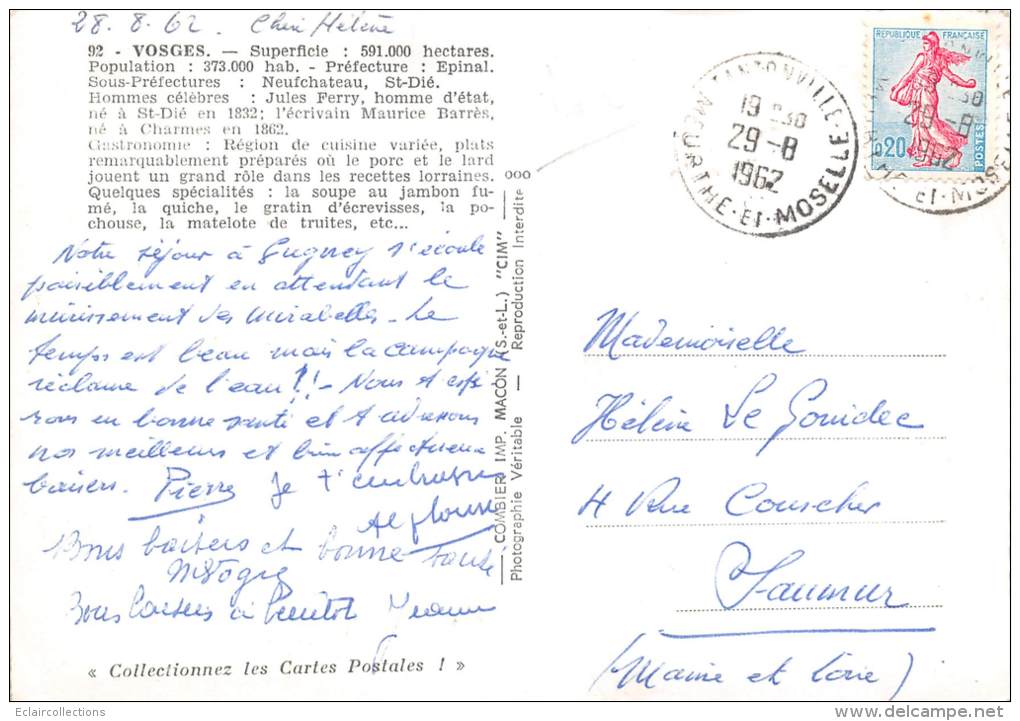 28.8.62 Chère Hélène
92 - VOSGES. — Superficie : 591.000 hectares.
Population : 373.000 hab. - Préfecture : Epinal.
Sous-Préfectures : Neufchateau, St-Dié.
Hommes célèbres : Jules Ferry, homme d'état,
né à St-Dié en 1832; l'écrivain Maurice Barrès,
né à Charmes en 1862.
Gastronomie : Région de cuisine variée, plats
remarquablement préparés où le porc et le lard
jouent un grand rôle dans les recettes lorraines.
Quelques spécialités : la soupe au jambon fu-
mé, la quiche, le gratin d'écrevisses, la po-
chouse, la matelote de truites, etc...
Notre séjour à Gugney s'écoule
paisiblement en attendant le
mûrissement des Mirabelles - Le
temps est beau mais la campagne
réclame de l'eau !! - Nous t'espé
rons en bonne santé et t'adressons
nos meilleurs et bien affectueux
baisers. Pierre Je t'embrasse
Bons baisers et bonne santé
Bons baisers à bientôt
« Collectionnez les Cartes Postales ! »
COMBIER IMP. MACON (S.-et-L.) "CIM"
Photographie Véritable — Reproduction Interdite
ooo
TANTONVILLE
MEURTHE-ET-MOSELLE
19 H30
29-8
1962
REPUBLIQUE FRANÇAISE
0,20
POSTES
29-8
1962
Mademoiselle
Hélène Le Gouidec
4 Rue Courcher
Saumur
(Maine et Loire)
Eclaircollections
http://eclaircollections.delcampe.net